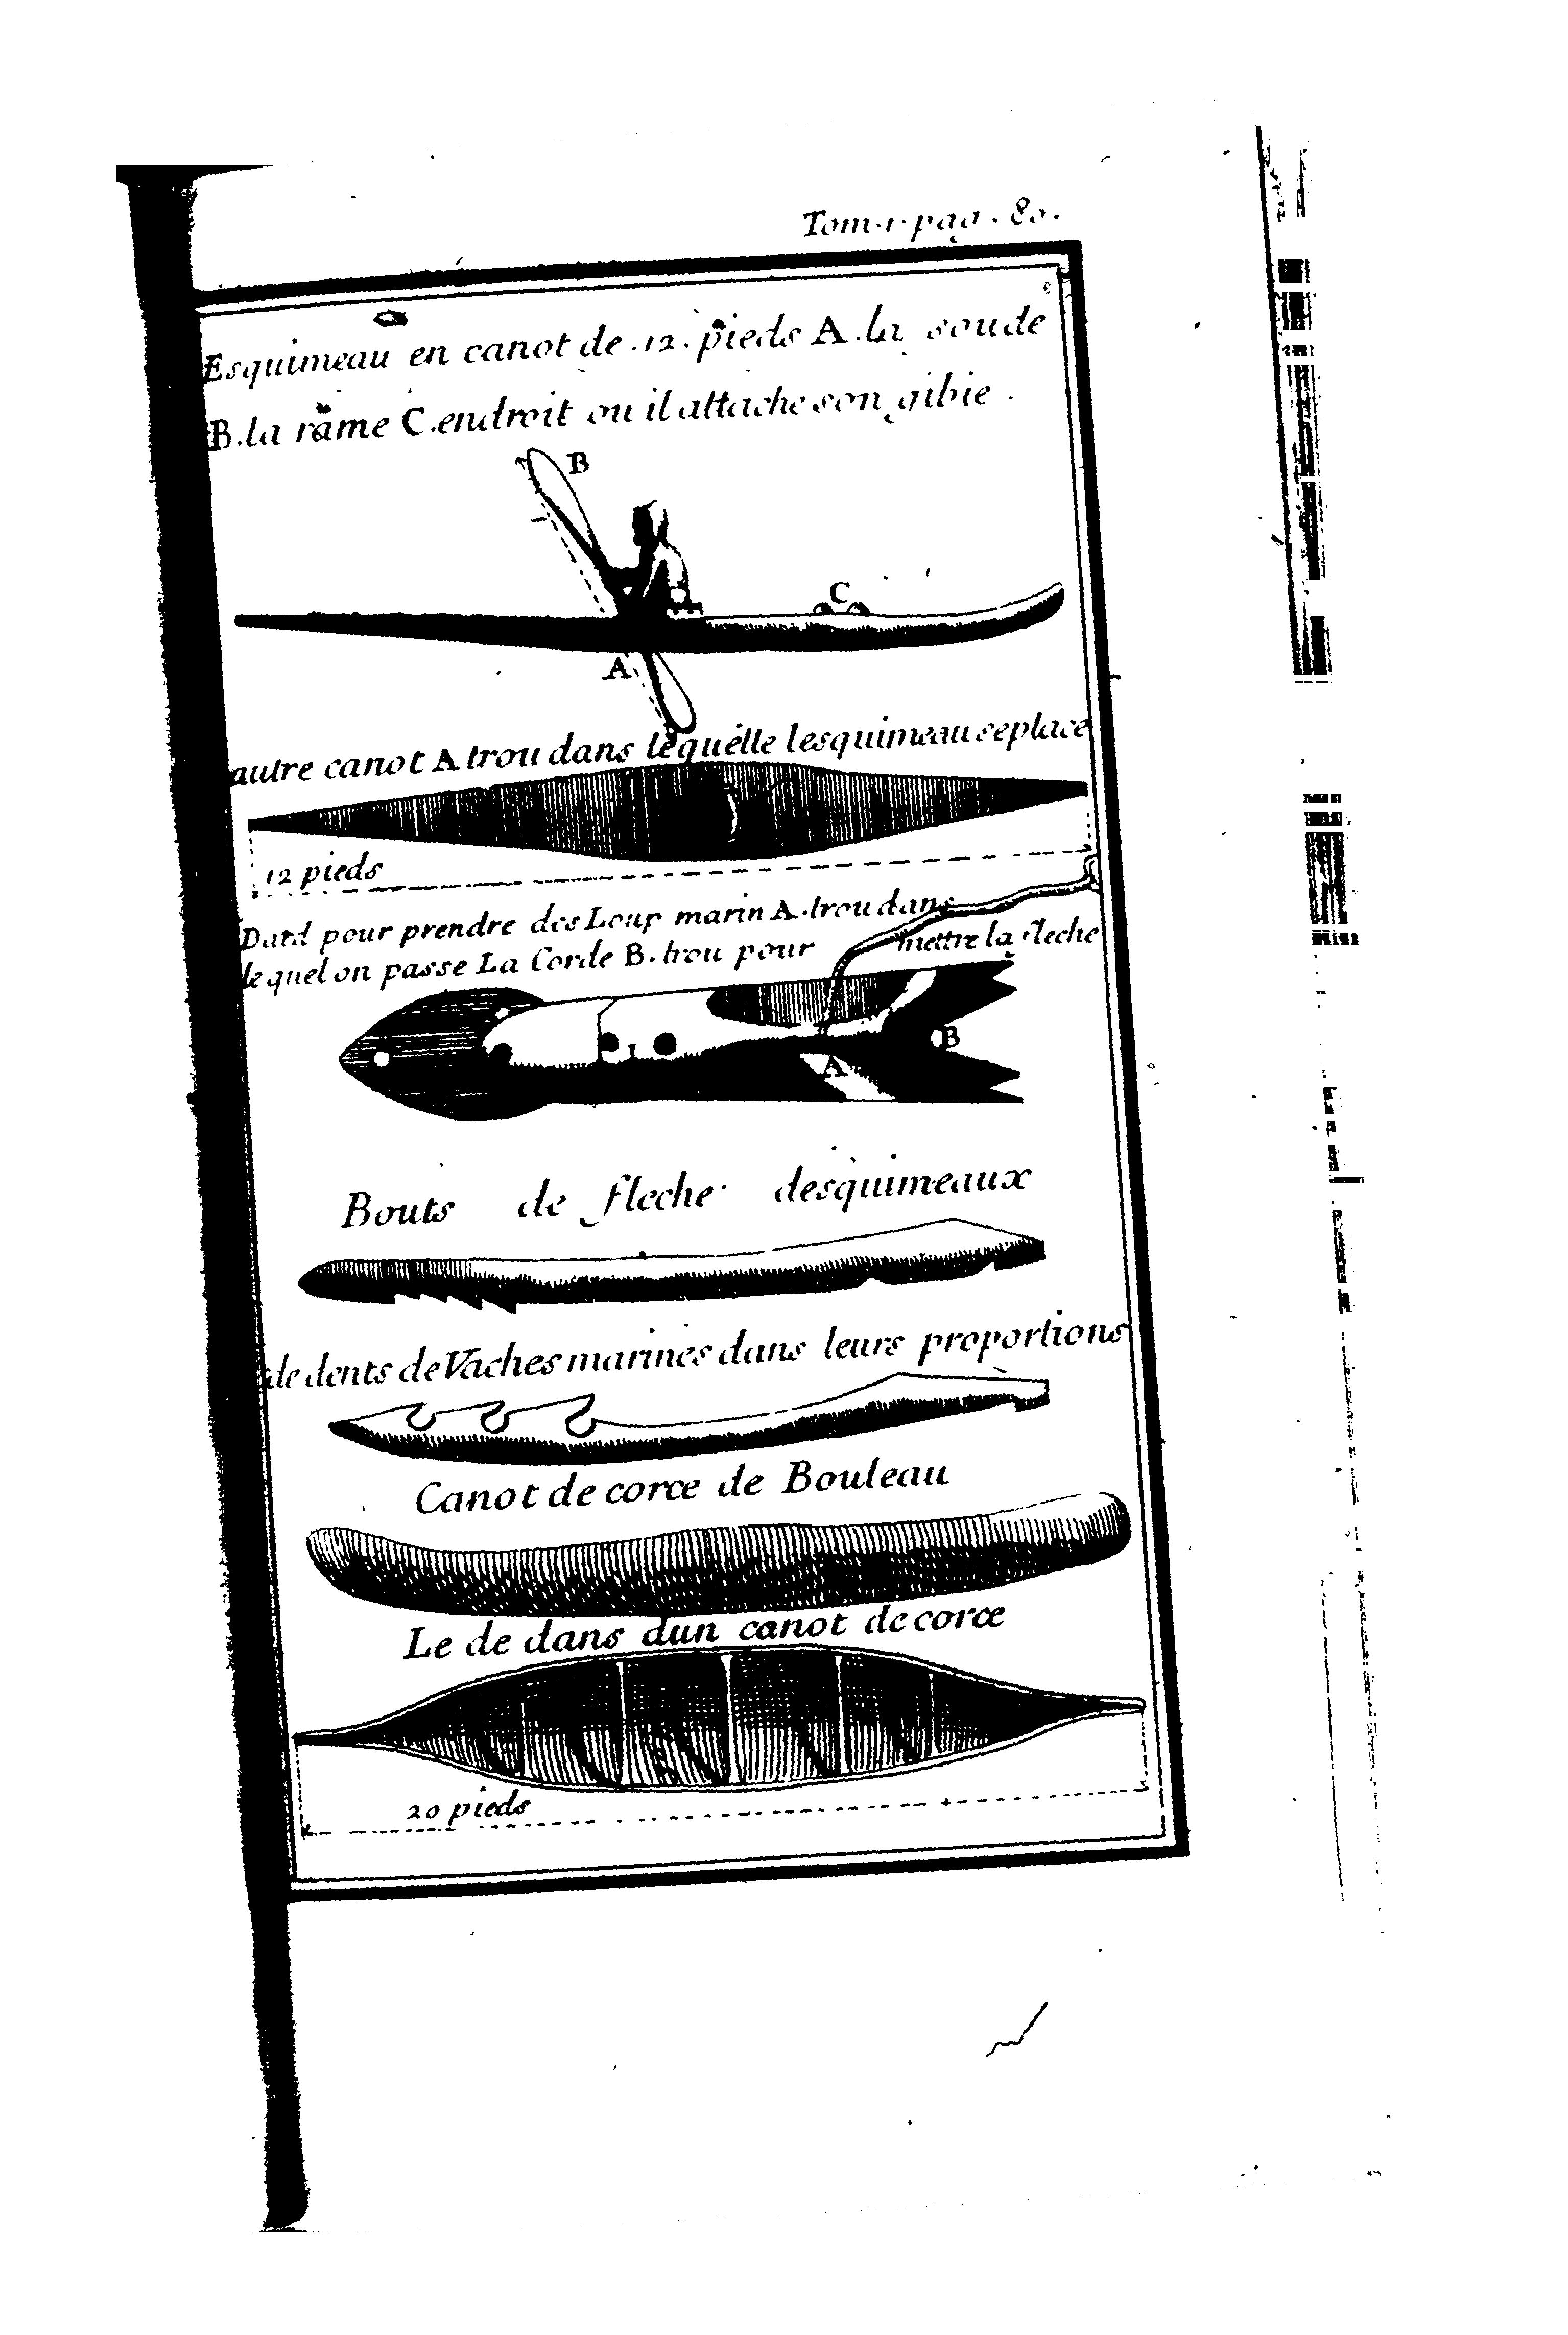 Tom. 1. pag. 80.
Esquimeau en canot de .12. pieds A .la soude
B .la rame C .endroit ou il attache son gibie .
B
C
A
autre canot A trou dans lequelle lesquimeau se place
12 pieds
Dard pour prendre des Loup marin A .trou dans
lequel on passe La Corde B. trou pour mettre la fleche
B
A
Bouts de fleche desquimeaux
de dents de Vaches marines dans leurs proportions
Canot de corce de Bouleau
Le de dans dun canot de corce
20 pieds